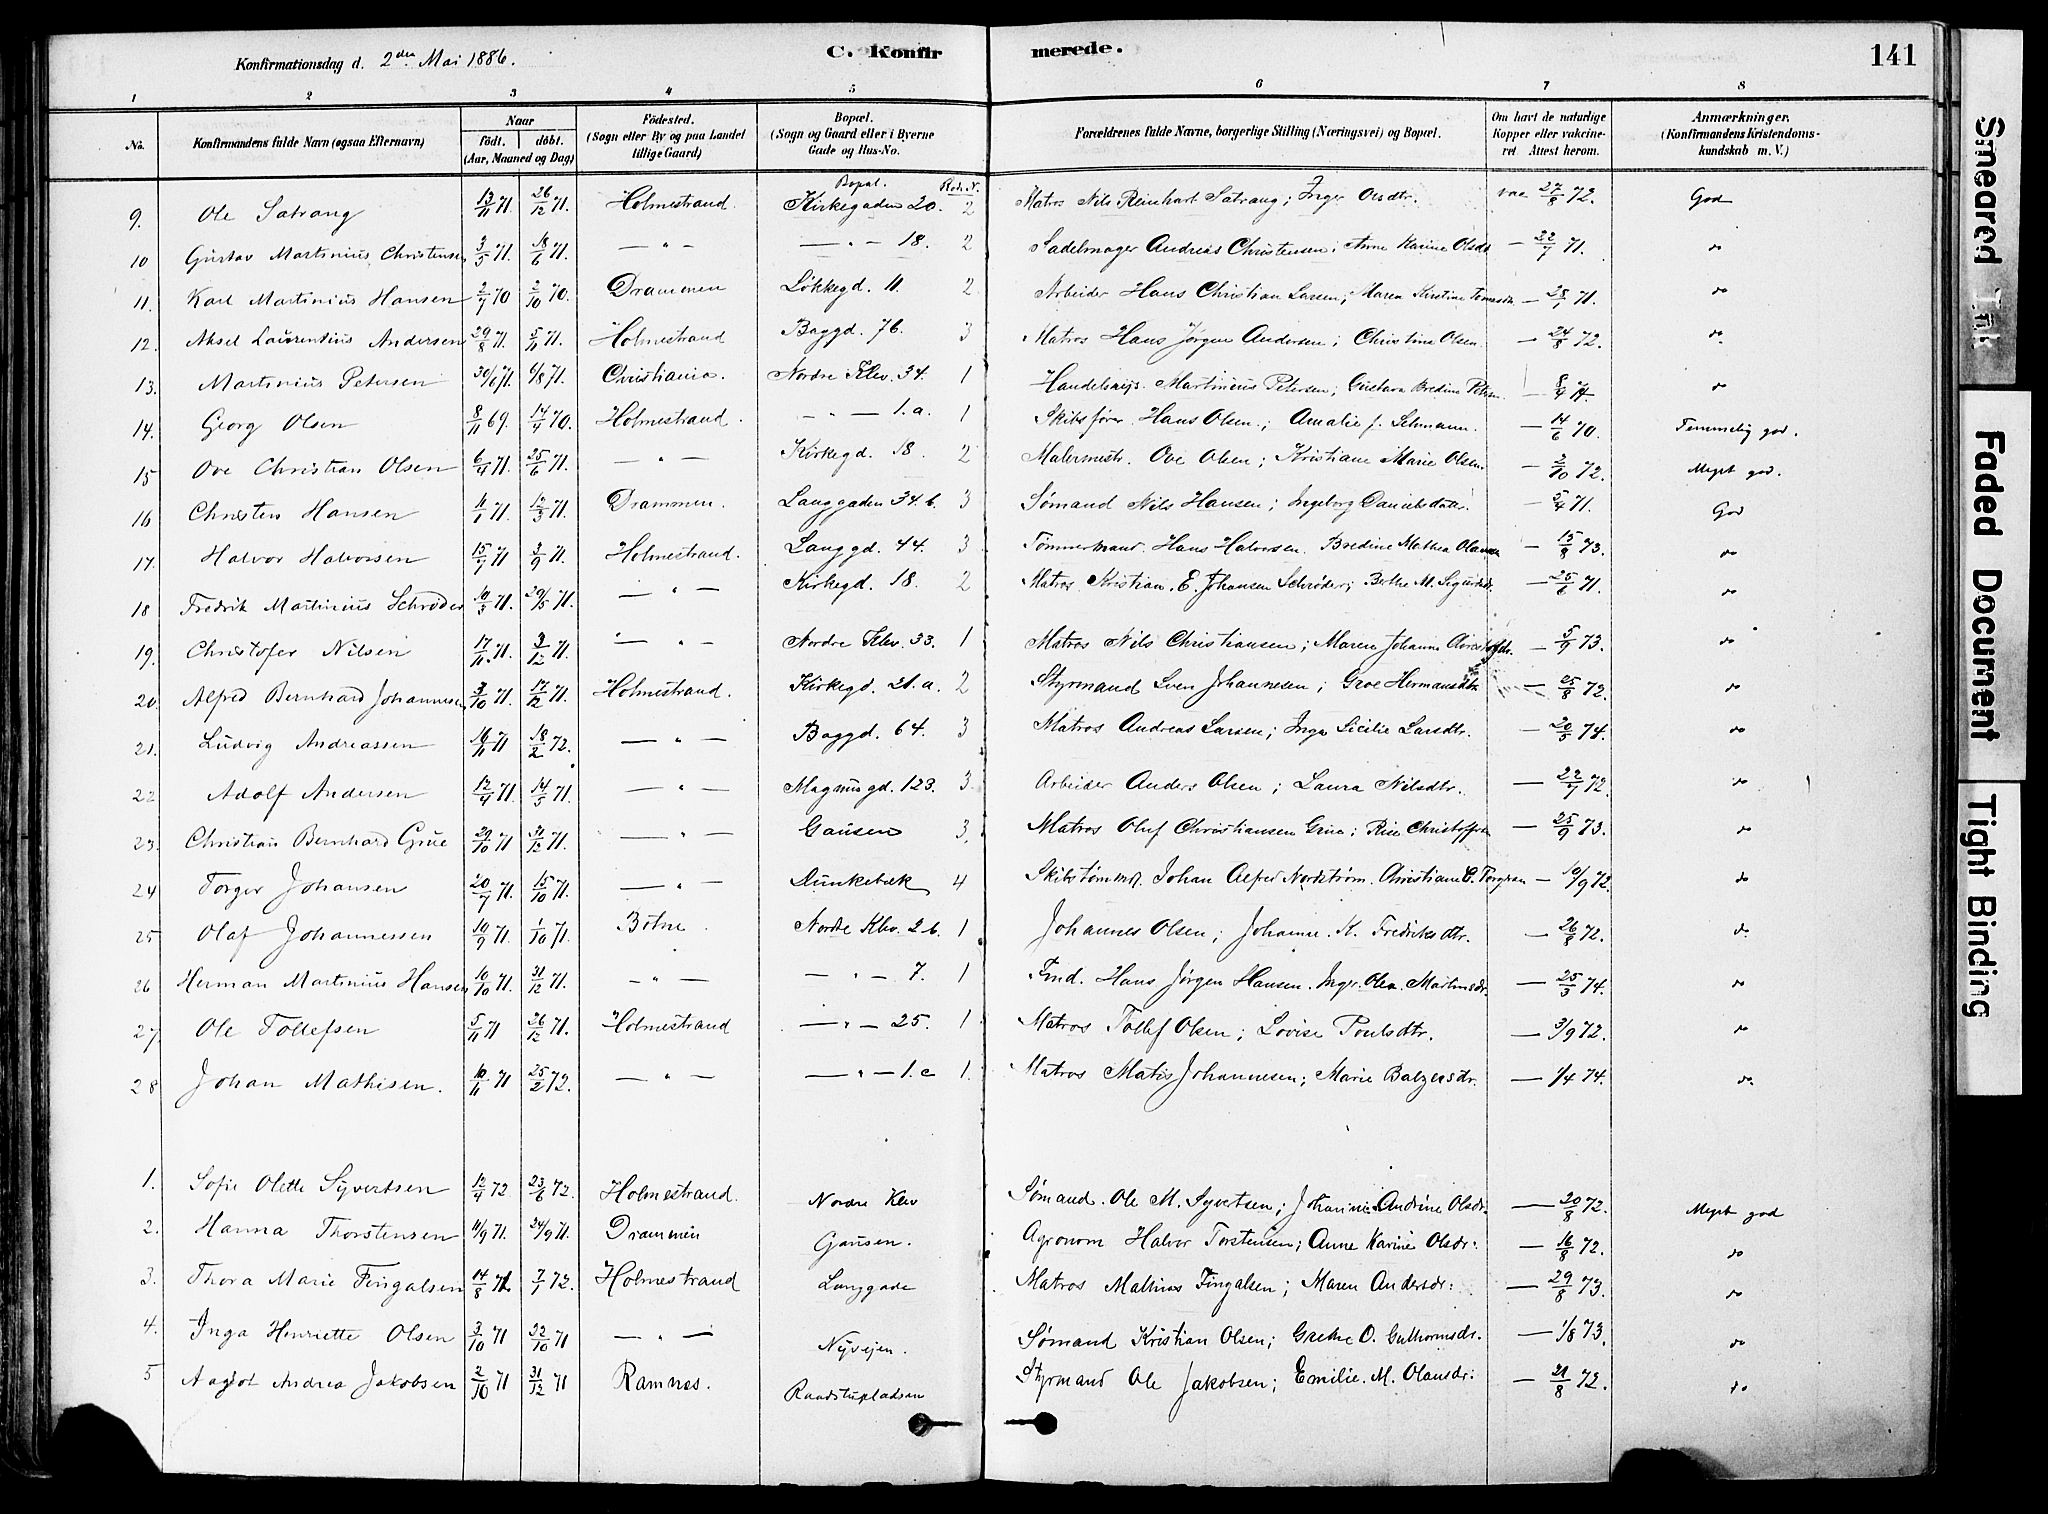 Konfirmationsdag d. 2den Mai 1886.
C. Konfirmerede.
141
1 2 3 4 5 6 7 8
No. Konfirmandens fulde Navn (ogsaa Efternavn) Naar födt. döbt. (Aar, Maaned og Dag) Födested. (Sogn eller By og paa Landet tillige Gaard) Bopæl. (Sogn og Gaard eller i Byerne Gade og Hus-No. Forældrenes fulde Navne, borgerlige Stilling (Næringsvei) og Bopæl. Om havt de naturlige Kopper eller vakcineret. Attest herom. Anmærkninger. (Konfirmandens Kristendomskundskab m. V.)
Bopæl. Rode N.
9. Ole Satrang 13/11 71. 26/12 71. Holmestrand. Kirkegaden 20. 2 Matros Nils Reinhart Satrang; Inger Olsdtr. vac 27/8 72. God
10 Gustav Martinius Christensen 3/5 71. 18/6 71. — " — — " — 18. 2 Sadelmager Andreas Christensen; Anne Karine Olsdtr — 22/7 71. do
11. Karl Martinius Hansen 2/7 70 2/10 70. Drammen Løkkegd. 11. 2 Arbeider Hans Christian Larsen; Maren Kirstine — 28/1 71. do
12. Aksel Laurentius Andersen 29/8 71. 5/11 71. Holmestrand Baggd. 76. 3 Matros Hans Jørgen Andersen; Christine Olsen. — 24/8 72. do
13. Martinius Petersen 30/6 71. 6/8 71. Christiania. Nordre Klev. 34. 1 Handelsrejs. Martinius Petersen; Gustava Bredine Petersen — 8/4 do
14. Georg Olsen 8/11 69. 14/4 70. Holmestrand. — " — 1.a. 1 Skibsfører Hans Olsen.; Amalie f. Lehmann. — 14/6 70. Temmelig god.
15. Ove Christian Olsen 6/4 71. 25/6 71. — " — Kirkegd. 18. 2 Malermestr. Ove Olsen; Kristiane Marie Olsen. — 2/10 72. Meget god.
16 Christen Hansen 11/1 71. 12/3 71. Drammen. Langgaden 34.b. 3 Sømand Nils Hansen; Ingeborg Danielsdatter. — 5/4 71. God
17. Halvor Halvorsen 15/7 71 3/9 71. Holmestrand. Langgd. 44. 3 Tømmermand. Hans Halvorsen. Bredine Mathea — 15/8 73. do
18 Fredrik Martinius Schrøder 10/3 71. 29/5 71. — " — Kirkegd. 18. 2 Matros Kristian. E. Johansen Schrøder; Berthe M. Sigurdsdr. — 25/6 71. do
19. Christofer Nilsen 17/11 71. 3/12 71. — " — Nordre Klev. 33. 1 Matros Nils Christiansen; Maren Johanne — 5/9 73. do
20. Alfred Bernhard Johannesen 3/10 71. 17/12 71. Holmestrand. Kirkegd. 21.a. 2 Styrmand Sven Johannesen; Groe Hermansdtr — 25/8 72. do
21. Ludvig Andreassen 16/11 71 18/2 72. — " — Baggd. 64. 3 Matros Andreas Larsen; Inge Sicilie Larsdtr. — 20/5 74. do
22 Adolf Andersen 12/4 71. 14/5 71. — " — Magnusgd. 123. 3. Arbeider Anders Olsen; Laura Nilsdtr. — 22/7 72. do
23. Christian Bernhard Grüe 29/10 71 31/12 71. — " — Gausen 3. Matros Oluf Christiansen Grüe; Rise — 25/9 73. do
24 Torger Johansen 20/7 71. 15/10 71. — " — Dunkebæk 4 Skibstømmr. Johan Alfred Nordstrøm. Christiane C. — 10/9 72. do
25 Olaf Johannessen 10/9 71. 1/10 71. Botne. Nordre Klev. 26. 1 Johannes Olsen; Johanne. K. Fredriksdtr. — 26/8 72. do
26 Herman Martinius Hansen 10/10 71. 31/12 71. — " — — " — 7. 1 Hans Jørgen Hansen. Inger Olea. Martinsdr. — 25/3 74. do
27. Ole Tollefsen 5/11 71 26/12 71. Holmestrand — " — 25. 1. Matros Tollef Olsen; Lovise Poulsdtr. — 3/9 72. do
28 Johan Mathisen. 10/11 71 25/2 72. — " — — " — 1.c 1. Matros Matis Johannesen; Marie Balzersdr. — 1/4 74. do.
1. Sofie Olette Syvertsen 12/4 72 23/6 72. Holmestrand. Nordre Klev Sømand. Ole M. Syvertsen; Johanne Andrine Olsdr. — 20/8 72. Meget god
2. Hanna Thorstensen 11/9 71. 24/9 71. Drammen Gausen. Agronom Halvor Torstensen; Anne Karine Olsdr. — 16/8 72. do
3. Thora Marie Fingalsen 14/8 71 7/1 72. Holmestrand Langgade Matros Mathias Fingalsen; Maren Andersdr: — 29/8 73. do
4. Inga Henriette Olsen 3/10 71 22/10 71 — " — Nyvejen. Sømand Kristian Olsen; Grethe O. Guthormsdr. — 1/8 73. do
5 Aagot Andrea Jakobsen 2/10 71 31/12 71 Ramnes. Raadstupladsen Styrmand Ole Jakobsen; Emilie. M. Olausdr: — 21/8 72. do
Smeared Ink
Faded Document
Tight Binding